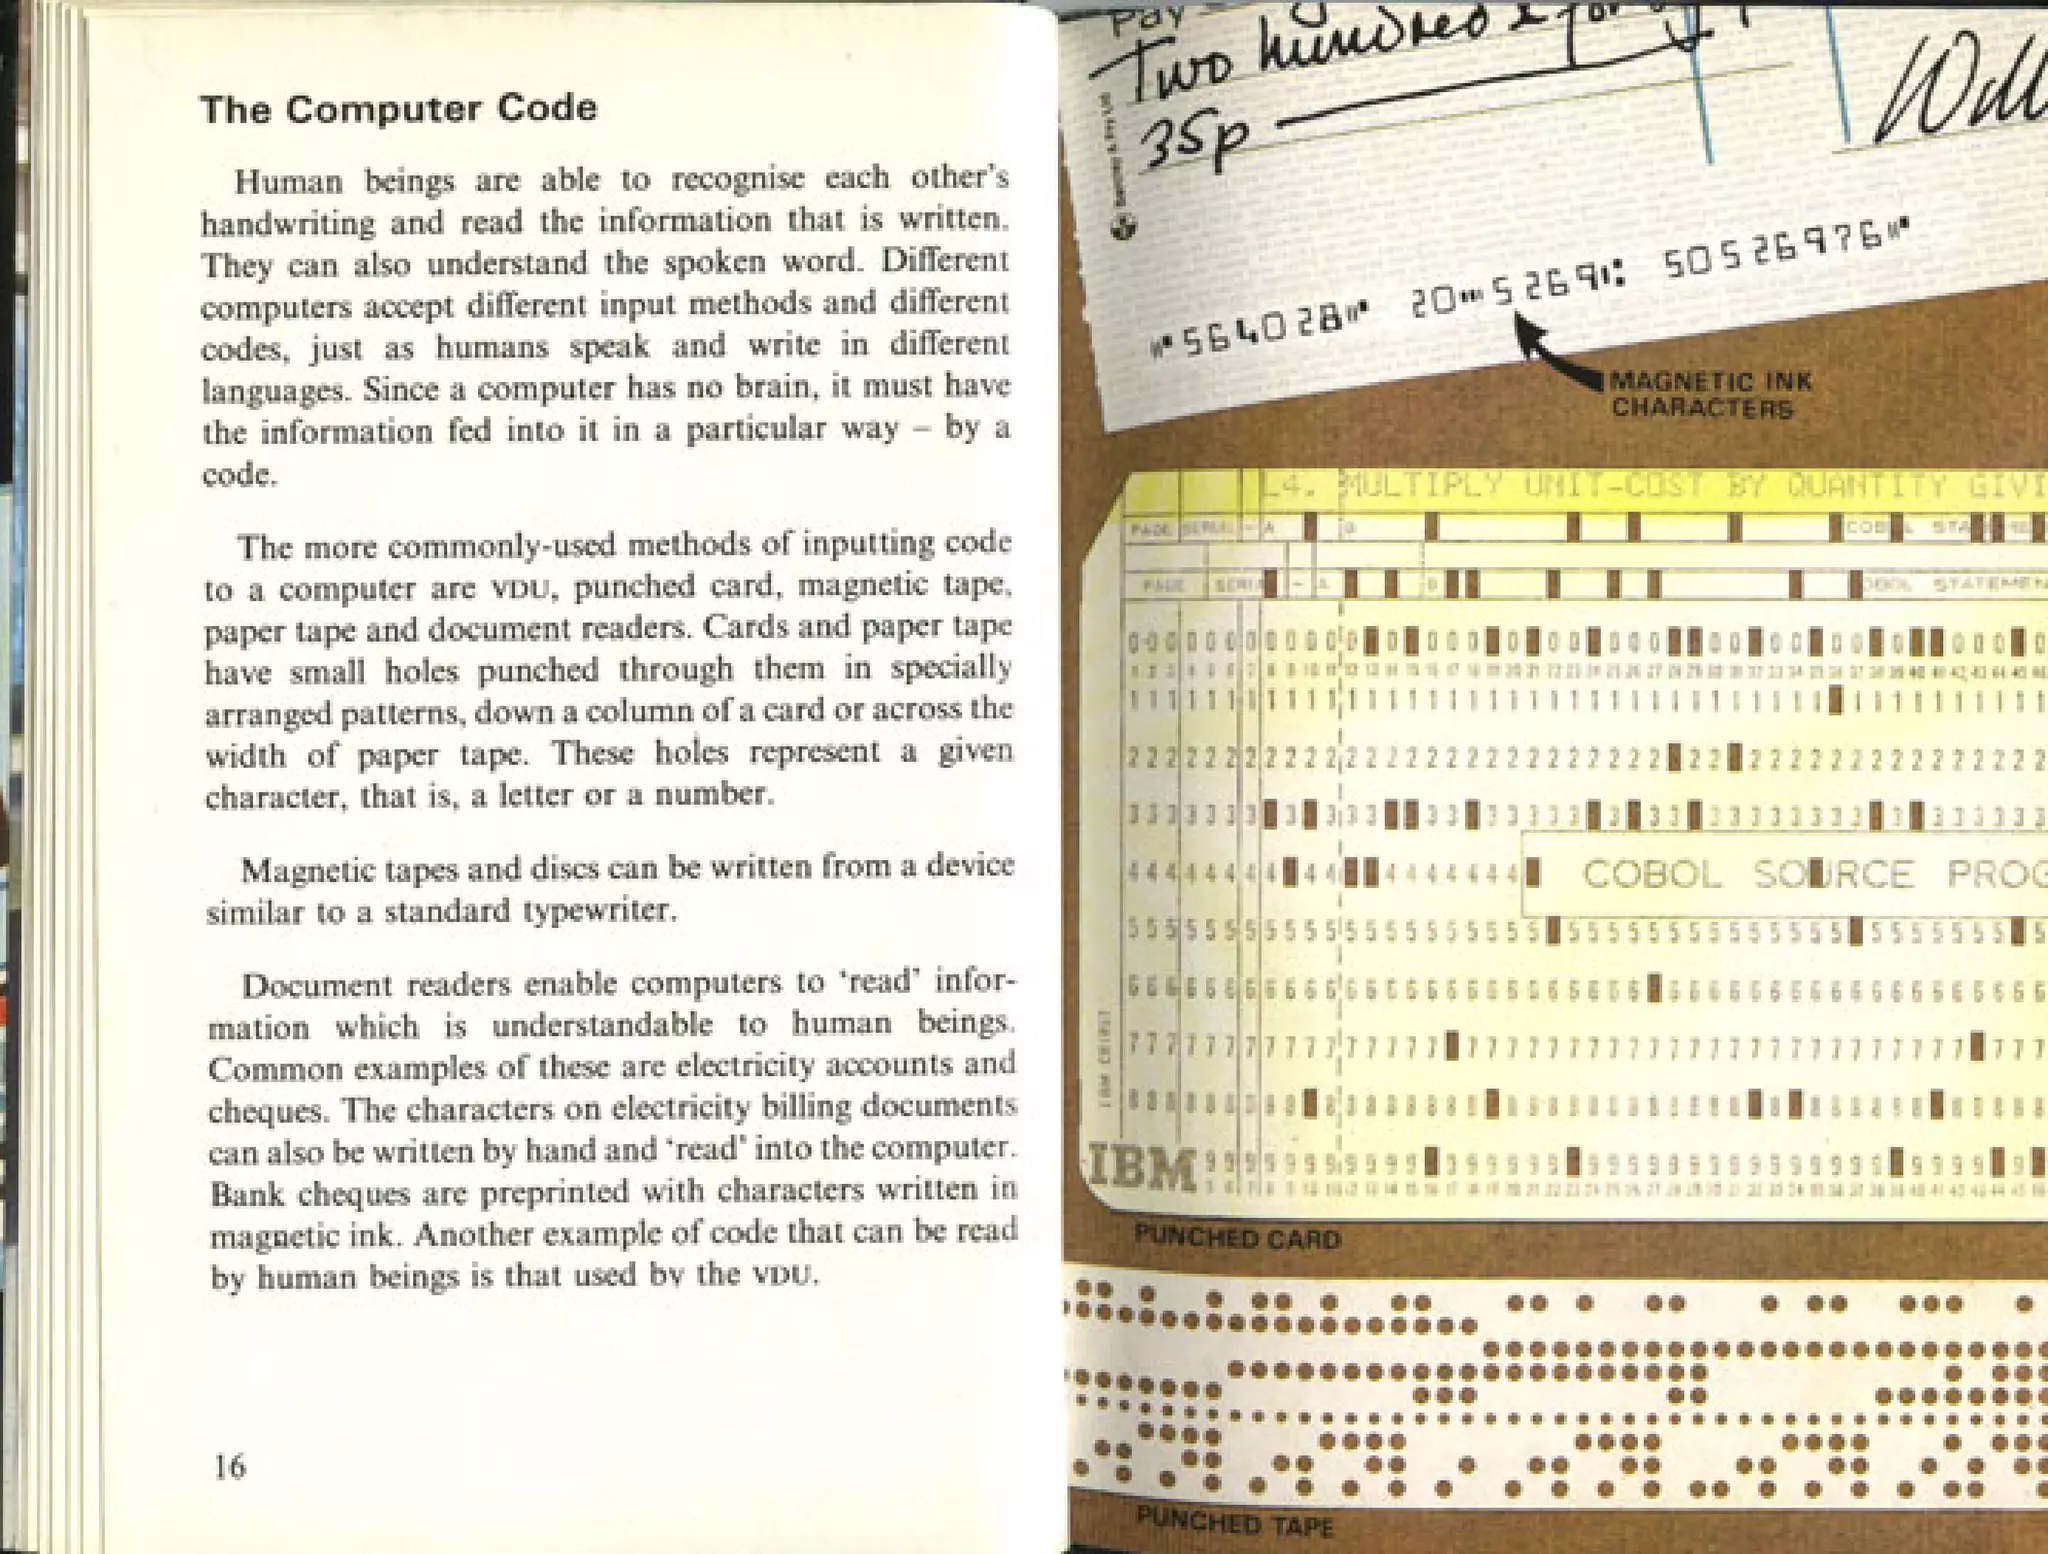 The Computer Code
Human beings are able to recognise each other's
handwriting and read the information that is written.
They can also understand the spoken word. Different
computers accept different input methods and different
codes, just as humans speak and write in different
languages. Since a computer has no brain, it must have
the information fed into it in a particular way – by a
code.
The more commonly-used methods of inputting code
to a computer are VDU, punched card, magnetic tape,
paper tape and document readers. Cards and paper tape
have small holes punched through them in specially
arranged patterns, down a column of a card or across the
width of paper tape. These holes represent a given
character, that is, a letter or a number.
Magnetic tapes and discs can be written from a device
similar to a standard typewriter.
Document readers enable computers to 'read' infor-
mation which is understandable to human beings.
Common examples of these are electricity accounts and
cheques. The characters on electricity billing documents
can also be written by hand and 'read' into the computer.
Bank cheques are preprinted with characters written in
magnetic ink. Another example of code that can be read
by human beings is that used by the VDU.
16
Pay
Two hundred &
35p
564028 20 52691 50526976
MAGNETIC INK
CHARACTERS
L4. MULTIPLY UNIT-COST BY QUANTITY GIVI
PAGE SERIAL A B
PAGE A B COBOL STATEMEN
COBOL SOURCE PROG
IBM
PUNCHED CARD
PUNCHED TAPE